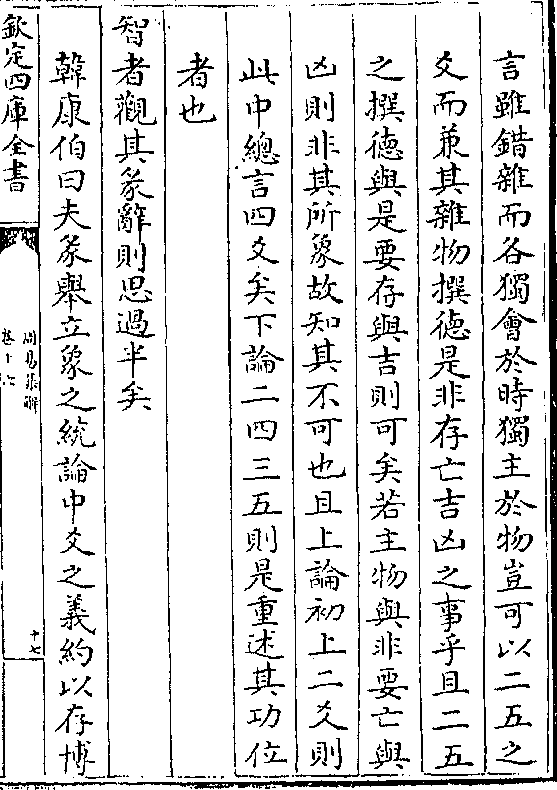 言雖錯雜而各獨會於時獨主於物豈可以二五之
爻而兼其雜物撰德是非存亡吉凶之事乎且二五
之撰德與是要存與吉則可矣若主物與非要亡與
凶則非其所象故知其不可也且上論初上二爻則
此中總言四爻矣下論二四三五則是重述其功位
者也
智者觀其彖辭則思過半矣
韓康伯曰夫彖舉立象之統論中爻之義約以存博
欽定四庫全書
周易集解
卷十六
十七